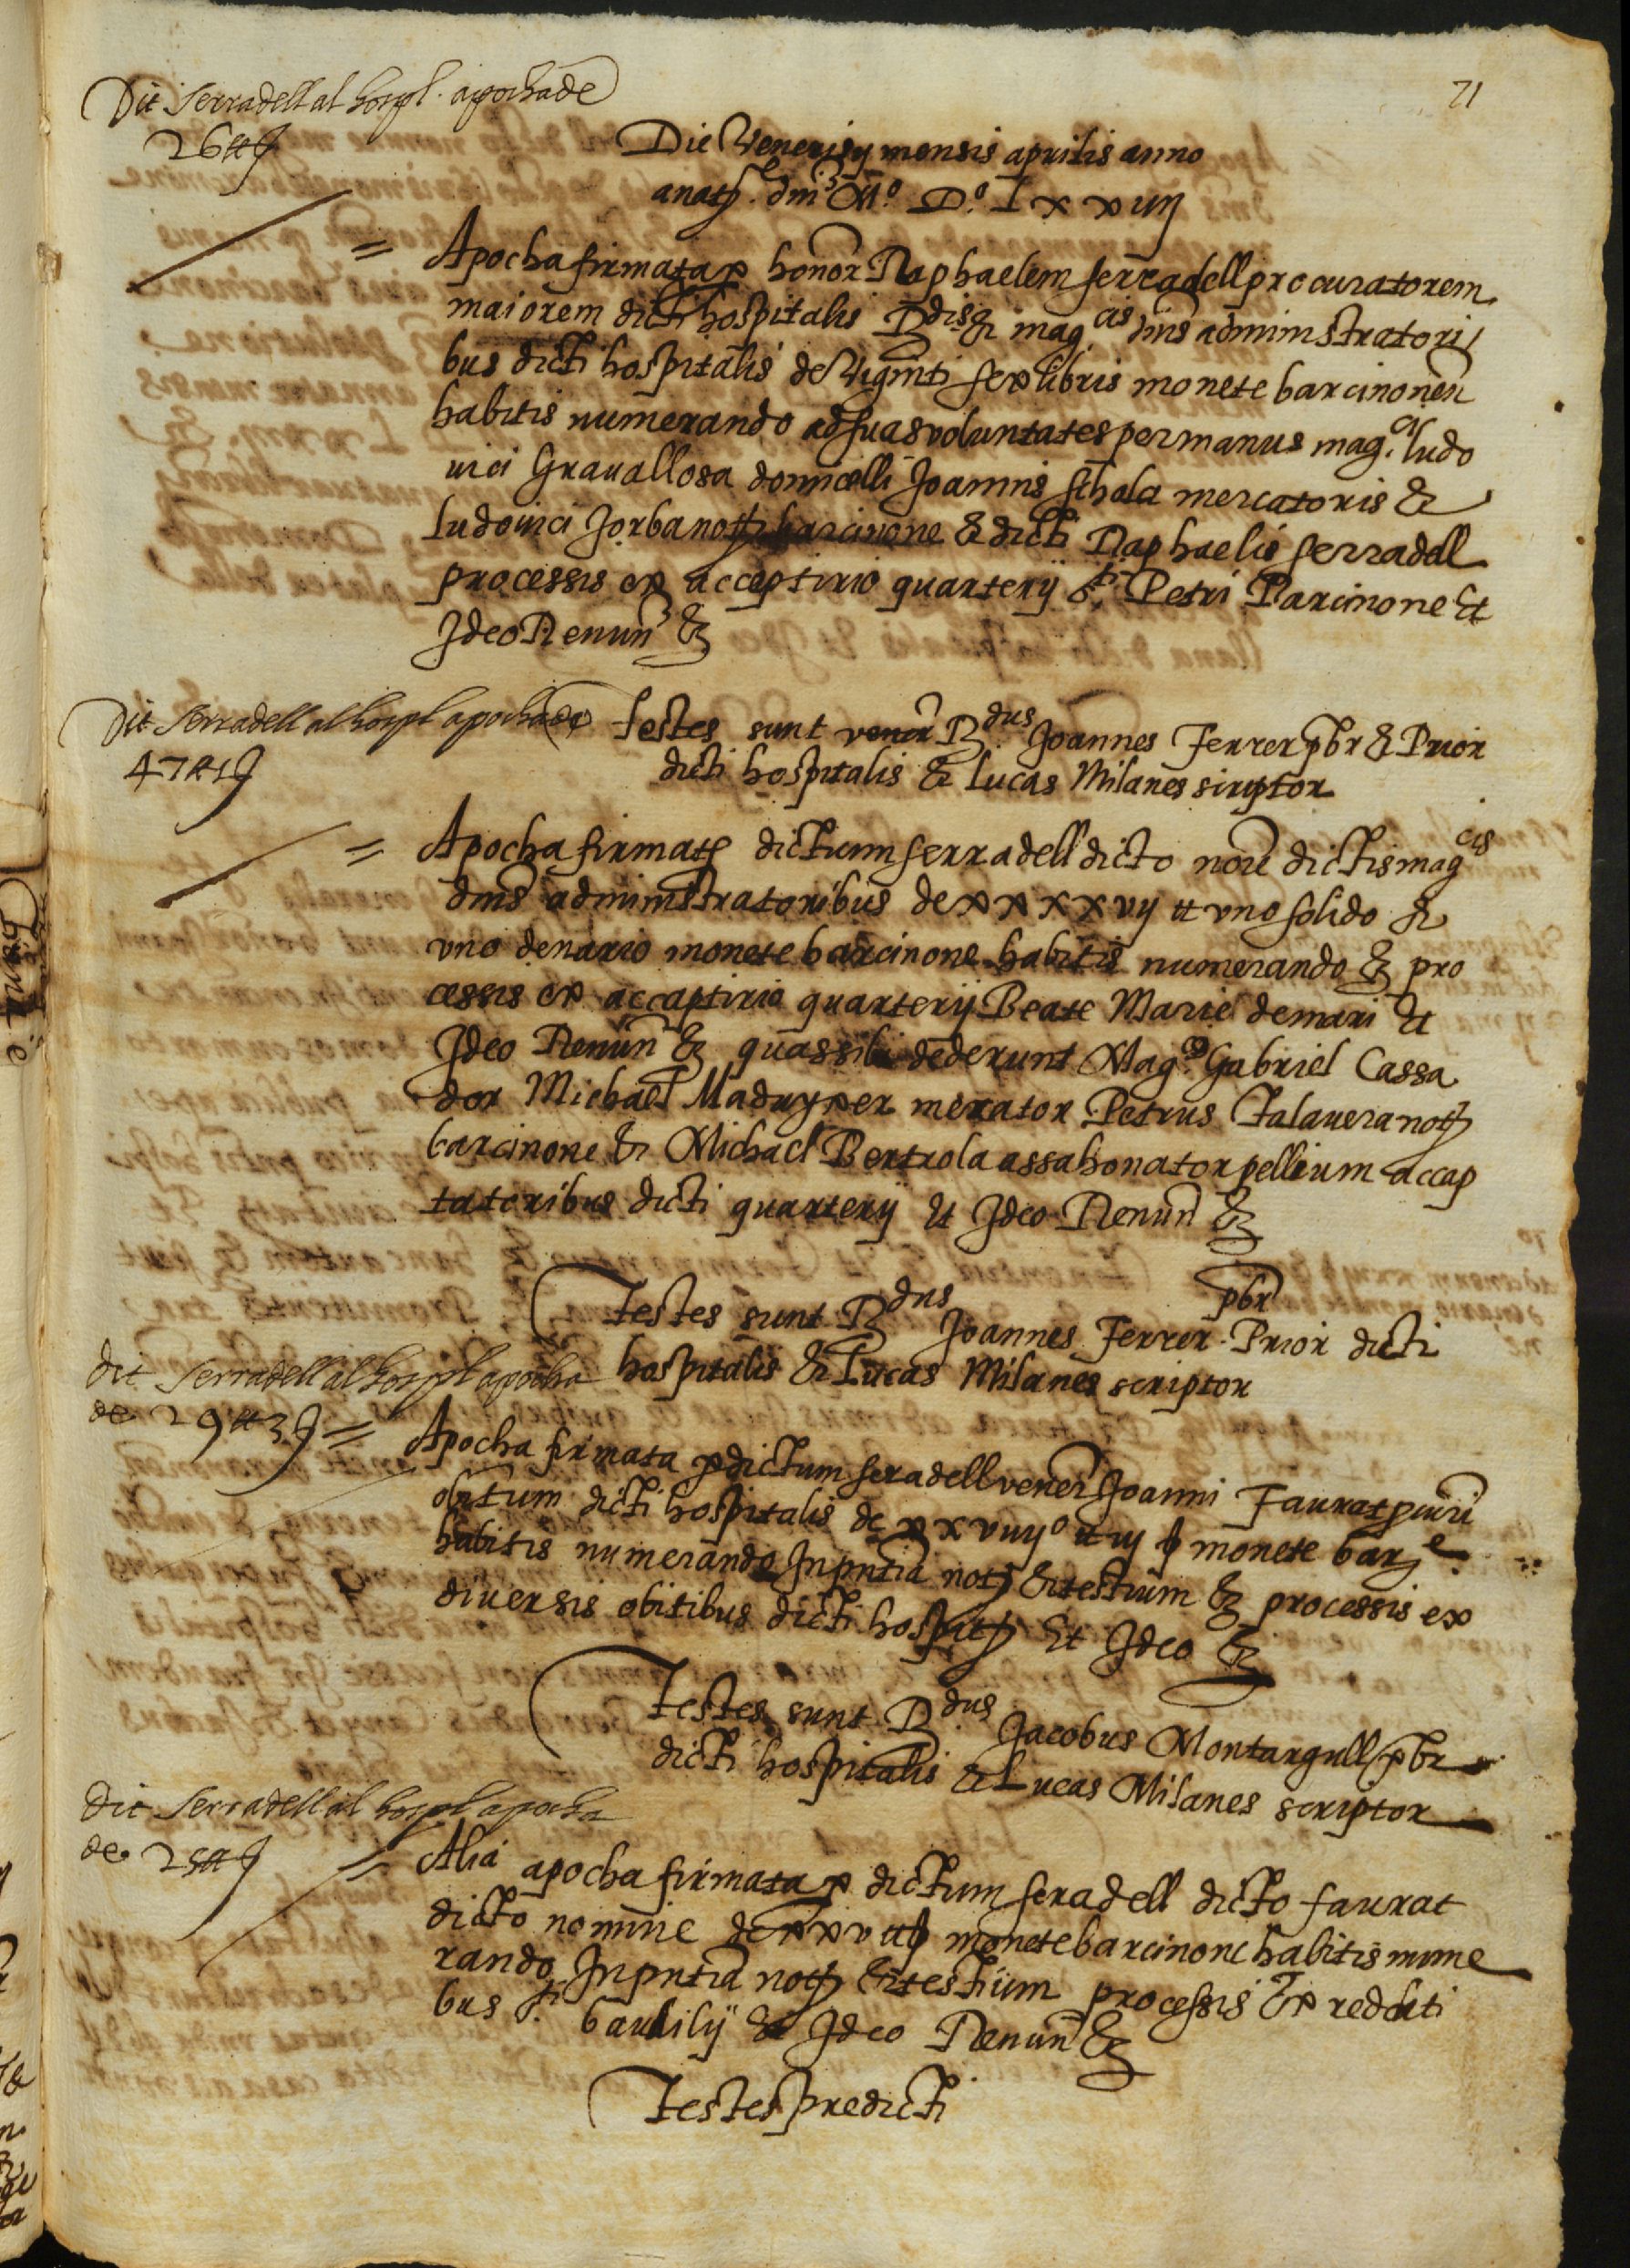 71
Dit Serradell al hospl. apocha de
26 ₶ ʃ
Die Veneris y mensis aprilis anno
a natȝ. dni Mº. Dº. Lxxviiij
= Apocha firmata p honor Raphaelem serradell procuratorem
maiorem dicti hospitalis Rdis & mag.cis dnis administratori
bus dicti hospitalis de viginti sex libris monete barcinonen
habitis numerando ad suas voluntates per manus mag.ci ludo
uici Grauallosa domicelli Joannis schala mercatoris &
ludovici Jorba notȝ barcinone & dicti Raphaelis serradell
processis ex acceptirio quarterij sti. Petri Barcinone Et
Ideo Renun &
Dit Serradell al hospl apocha de
47 ₶ 1 ʃ
Testes sunt vener Rdus Joannes Ferrer pbr & Prior
dicti hospitalis & lucas Milanes scriptor
= Apocha firmatȝ dictum serradell dicto noie dictis magcis
dnis administratoribus de xxxxvij ₶ vno solido &
vno denario monete barcinone habitis numerando & pro
cessis ex accaptirio quarterij Beate Marie de mari Et
Ideo Renun & quas sibi dederunt Mag.ci Gabriel Cassa
dor Michael Maduxer merator Petrus Talauera notȝ
barcinone & Michael Bertrola assahonator pellium accap
tatoribus dicti quarterij Et Ideo Renun &
Testes sunt Rdus Joannes Ferrer pbr Prior dicti
hospitalis & Lucas Milanes scriptor
dit Serradell al hospl apocha
de 29 ₶ 3 ʃ
= Apocha firmata p dictum seradell vener Joanni Faurat
obituum dicti hospitalis de xxviiijº ₶ iij ʃ monete barȝe
habitis numerando In pntia notȝ & testium & processis ex
diuersis obitibus dicti hospitȝ Et Ideo &
Testes sunt Rdus Jacobus Montargull pbr
dicti hospitalis & Lucas Milanes scriptor
dit Serradell al hospl apocha
de 25 ₶ ʃ
= Alia apocha firmata p dictum seradell dicto faurat
dicto nomine de xxv ₶ ʃ monete barcinone habitis nume
rando In pntia notȝ & testium processis Ex redditi
bus sti. baudilij & Ideo Renun &
Testes predicti